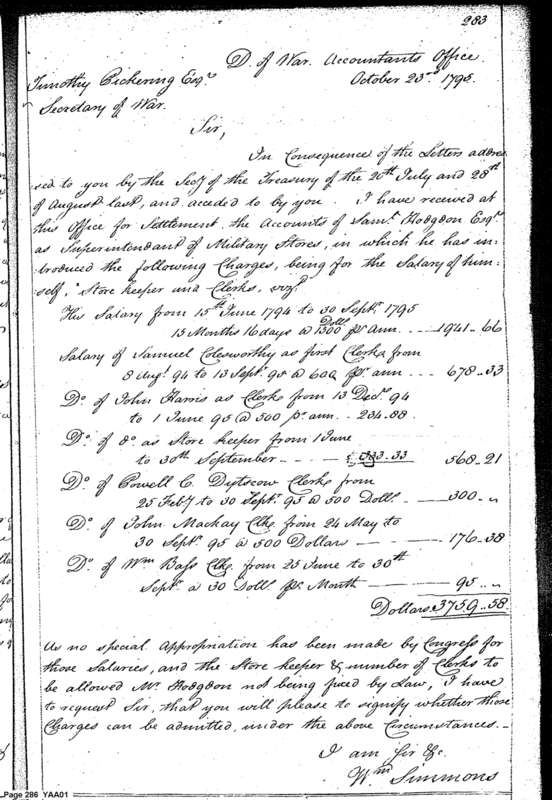 283
D. of War. Accountants Office
Timothy Pickering Esqr.
October 23rd 1795.
Secretary of War.
Sir,
In Consequence of the Letters addres
sed to you by the Secy of the Treasury of the 20th July and 28th
of August last, and acceded to by you. I have received at
this Office for Settlement, the Accounts of Saml. Hodgdon Esqr.
as Superintendant of Military Stores, in which he has in-
troduced the following Charges, being for the Salary of him-
self, Store keeper and Clerks, vizt.
His Salary from 15th June 1794 to 30 Septr. 1795
15 Months 16 days @ 1500 Dolls. pr. ann. - - - 1941 - 66
Salary of Samuel Colesworthy as first Clerk from
8 Augt. 94 to 13 Septr. 95 @ 600 pr. ann - - - 678 - 33
Do. of John Harris as Clerk from 13 Decr. 94
to 1 June 95 @ 500 pr. ann - - 234.88.
Do. of do. as Store keeper from 1 June
to 30th September - - - - 333.33 568 - 21
Do. of Powell C. Clerk from
25 Feby to 30 Septr. 95 @ 500 Dolls. - 300 - "
Do. of John Mackay Clk. from 24 May to
30 Septr. 95 @ 500 Dollars - - - 176 - 38
Do. of Wm Bass Clk. from 25 June to 30th
Septr. @ 30 Dolls. pr. Month - 95 - "
Dollars 3759 - 58
As no special Appropriation has been made by Congress for
those Salaries, and the Store keeper & number of Clerks to
be allowed Mr. Hodgdon not being fixed by Law, I have
to request Sir, that you will please to signify whether those
Charges can be admitted, under the above Circumstances. -
I am Sir &c.
Wm Simmons
Page 286 YAA01